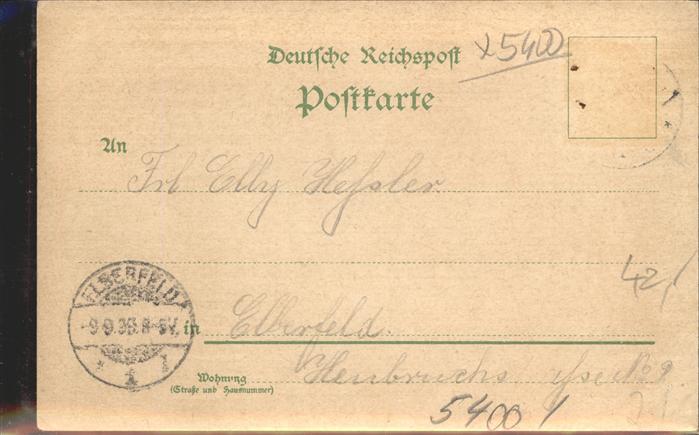 Deutsche Reichspost
x5400
Postkarte
An
Frl Elly Hessler
42,
ELBERFELD
in Elberfeld.
Wohnung
(Straße und Hausnummer)
No 9
5400 1